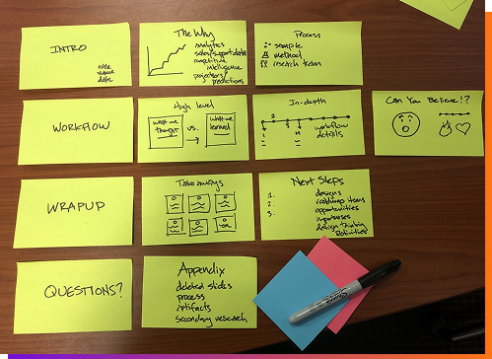 INTRO
title
name
date
The Why
analytics
sales/support data
competitive
intelligence
projections/
predictions
Process
sample
method
research team
WORKFLOW
High level
what we
thought
vs.
what we
learned
In-depth
workflow
details
Can You Believe!?
WRAPUP
Takeaways
Next Steps
1. designs
2. roadmap items
3. opportunities
hypotheses
design thinking
activities
QUESTIONS?
Appendix
deleted slides
process
artifacts
secondary research
Sharpie